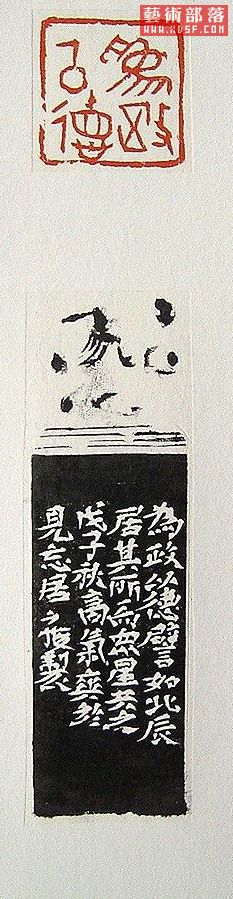 藝術部落
WWW.XDSF.COM
為政
以德
為政以德譬如北辰
居其所而衆星共之
戊子秋高氣爽於
見忘居少俊製